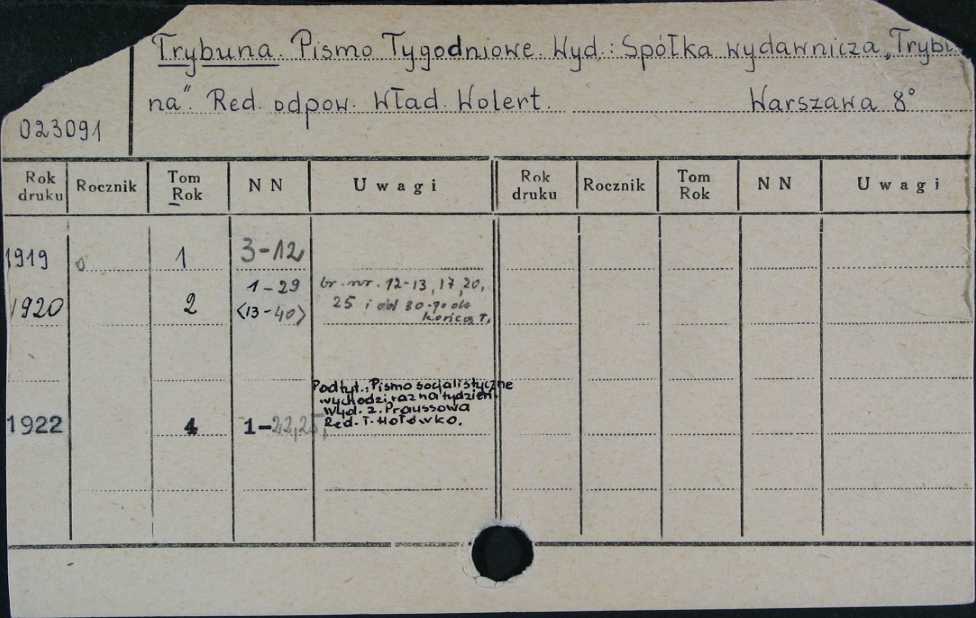 Trybuna. Pismo Tygodniowe. Wyd.: Spółka wydawnicza „Trybu-
na". Red. odpow. Wład. Wolert. Warszawa 8°
023091
Rok druku Rocznik Tom Rok NN Uwagi Rok druku Rocznik Tom Rok NN Uwagi
1919 1 3-12
1920 2 1-29 <13-40> br. nr. 12-13, 17, 20,
25 i od 30-go do
końca r.
Podtyt.: Pismo socjalistyczne
wychodzi raz na tydzień.
Wyd. Z. Praussowa
Red. T. Hołówko.
1922 4 1-22,25,